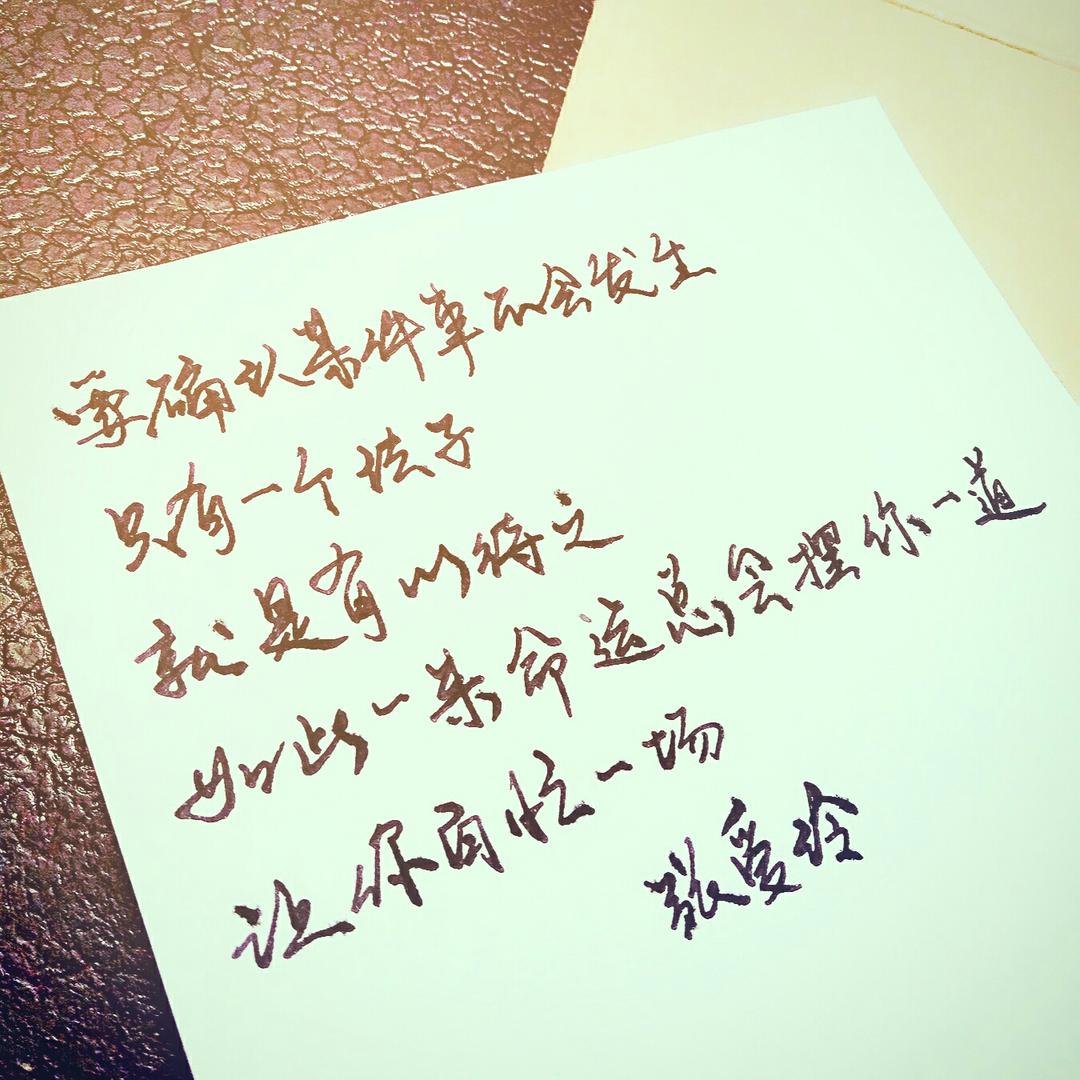 要确认某件事不会发生
只有一个法子
就是有以待之
如此一来命运总会摆你一道
让你白忙一场
张爱玲